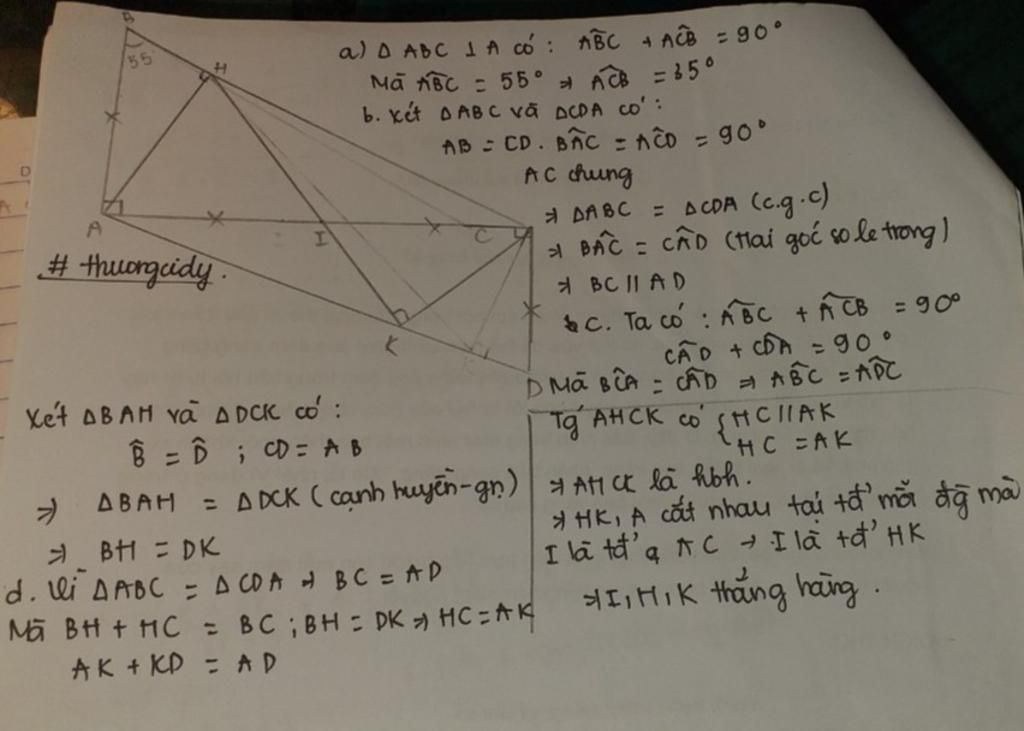 B
55
H
A
I
C
K
D
# thuongcidy.
a) Δ ABC ⊥ A có : ABĈ + ACB̂ = 90°
Mà ABĈ = 55° ⇒ ACB̂ = 35°
b. Xét ΔABC và ΔCDA có :
AB = CD . BAĈ = ACD̂ = 90°
AC chung
⇒ ΔABC = ΔCDA (c.g.c)
⇒ BAĈ = CAD̂ (Hai góc so le trong)
⇒ BC // AD
c. Ta có : ABĈ + ACB̂ = 90°
CAD̂ + CDÂ = 90°
Mà BCÂ = CAD̂ ⇒ ABĈ = ADĈ
Xét ΔBAH và ΔDCK có :
B̂ = D̂ ; CD = AB
⇒ ΔBAH = ΔDCK (cạnh huyền-gn)
⇒ BH = DK
d. Vì ΔABC = ΔCDA ⇒ BC = AD
Mà BH + HC = BC ; BH = DK ⇒ HC = AK
AK + KD = AD
Tg AHCK có { HC // AK
HC = AK
⇒ AHCK là hbh.
⇒ HK, A cắt nhau tại tđ' mỗi đg̃ mà
I là tđ' q AC → I là tđ' HK
⇒ I, H, K thẳng hàng .